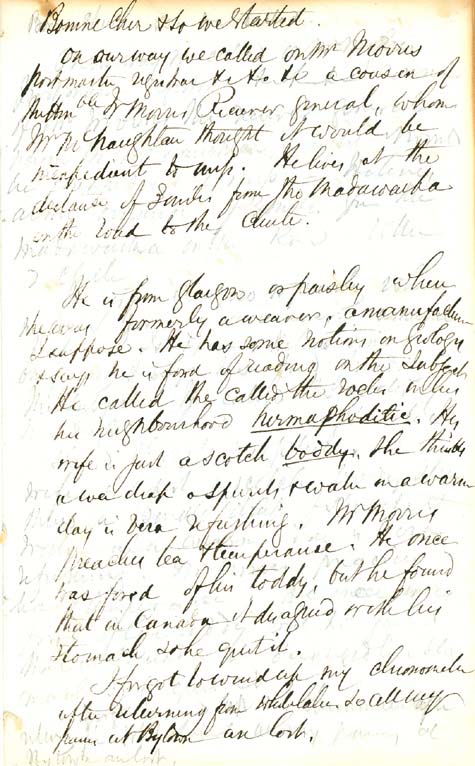 Bonne Cher & so we started.
On our way we called on Mr Morris
Postmaster registrar &c &c &c a cousin of
the Honble Mr Morris, Receiver general, whom
Mr McNaughtan thought it would be
inexpedient to miss. He lives at the
distance of 2 miles from the Madawaska
on the road to the Chute.
He is from Glasgow or paisley when
he was formerly a weaver, a manufacturer
I suppose. He has some notions on Geology
& says he is fond of reading on the subject
He called the called the rocks in his
his neighbourhood hermaphoditic. His
wife is just a scotch boddy. She thinks
a wee drap o spirits & water on a warm
day is vera refreshing. Mr Morris
preaches tea & temperance. He once
was fond of his toddy, but he found
that in Canada it disagreed with his
stomach & he quit it.
I forgot to wind up my chronometer
after returning from White lake, so all my
at Bytown are lost.